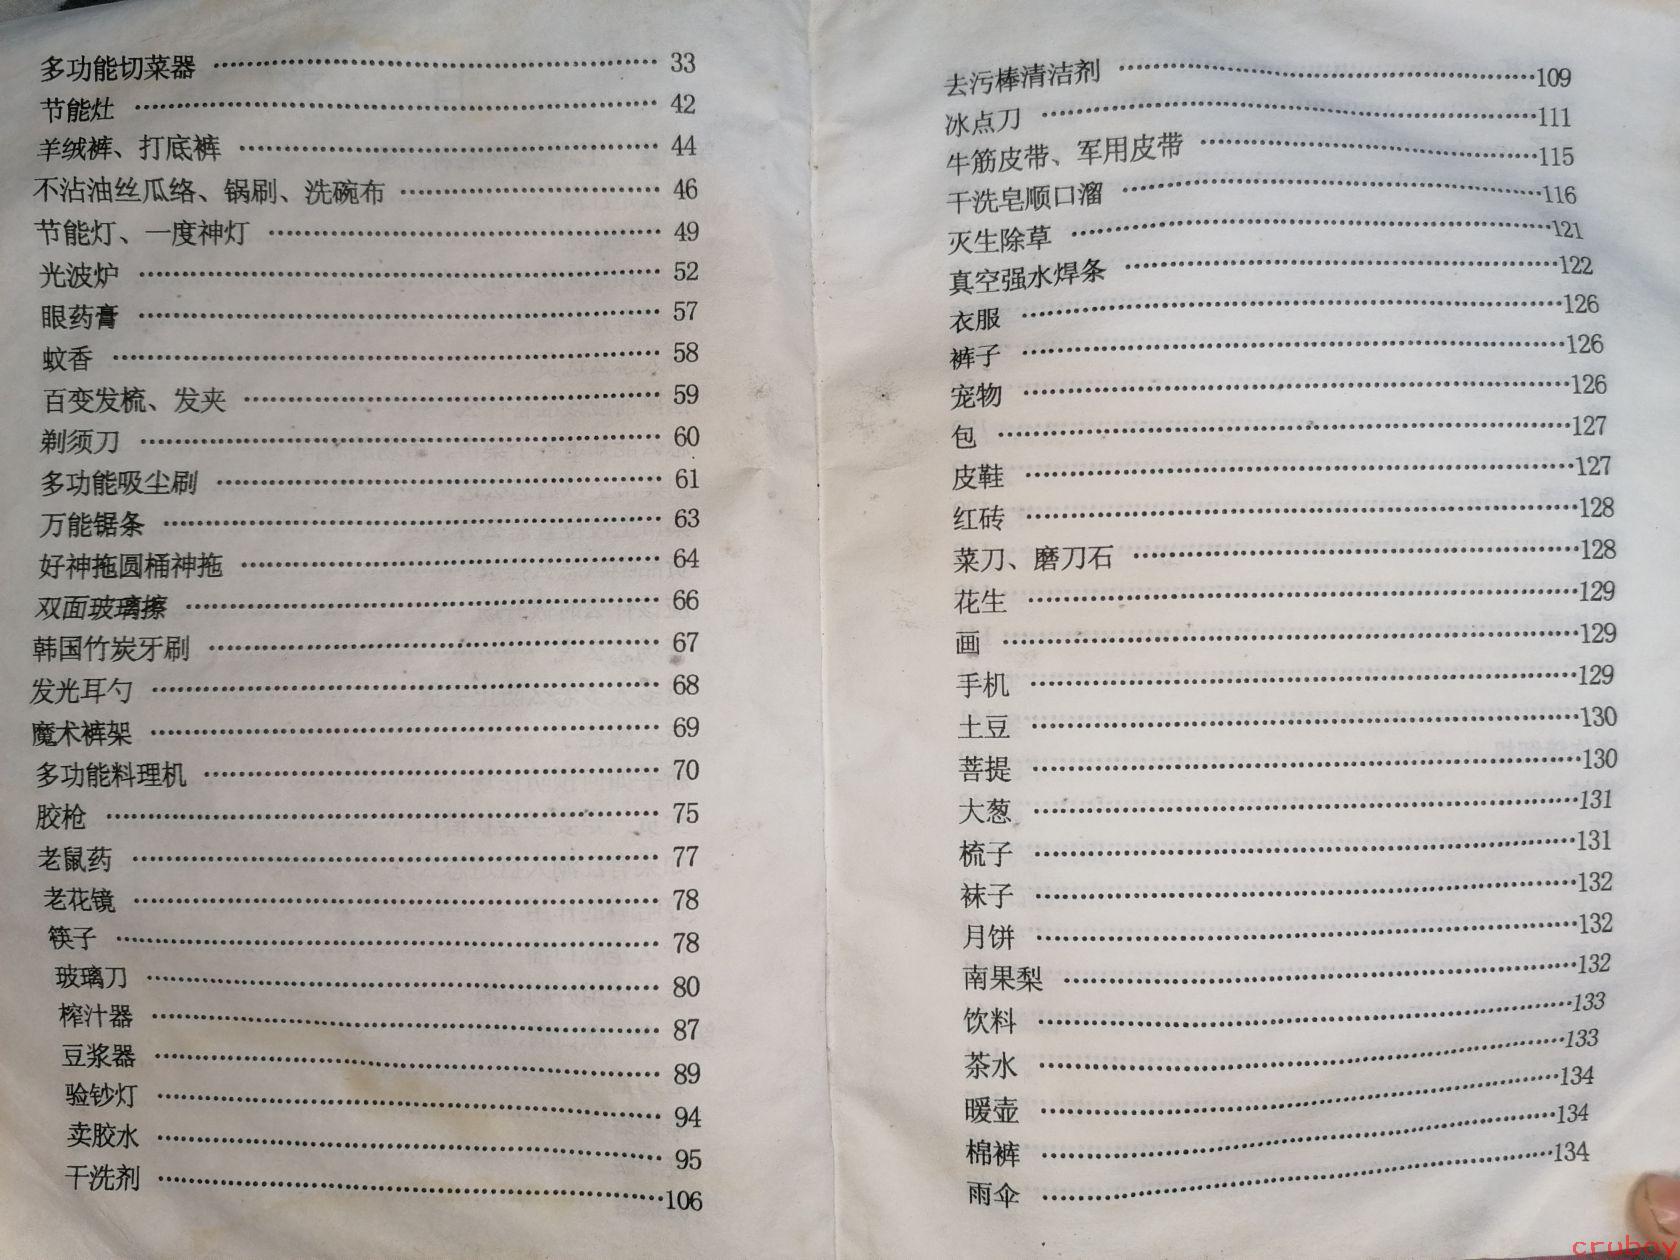 多功能切菜器 ························ 33
节能灶 ························ 42
羊绒裤、打底裤 ························ 44
不沾油丝瓜络、锅刷、洗碗布 ························ 46
节能灯、一度神灯 ························ 49
光波炉 ························ 52
眼药膏 ························ 57
蚊香 ························ 58
百变发梳、发夹 ························ 59
剃须刀 ························ 60
多功能吸尘刷 ························ 61
万能锯条 ························ 63
好神拖圆桶神拖 ························ 64
双面玻璃擦 ························ 66
韩国竹炭牙刷 ························ 67
发光耳勺 ························ 68
魔术裤架 ························ 69
多功能料理机 ························ 70
胶枪 ························ 75
老鼠药 ························ 77
老花镜 ························ 78
筷子 ························ 78
玻璃刀 ························ 80
榨汁器 ························ 87
豆浆器 ························ 89
验钞灯 ························ 94
卖胶水 ························ 95
干洗剂 ························ 106
去污棒清洁剂 ························ 109
冰点刀 ························ 111
牛筋皮带、军用皮带 ························ 115
干洗皂顺口溜 ························ 116
灭生除草 ························ 121
真空强水焊条 ························ 122
衣服 ························ 126
裤子 ························ 126
宠物 ························ 126
包 ························ 127
皮鞋 ························ 127
红砖 ························ 128
菜刀、磨刀石 ························ 128
花生 ························ 129
画 ························ 129
手机 ························ 129
土豆 ························ 130
菩提 ························ 130
大葱 ························ 131
梳子 ························ 131
袜子 ························ 132
月饼 ························ 132
南果梨 ························ 132
饮料 ························ 133
茶水 ························ 133
暖壶 ························ 134
棉裤 ························ 134
雨伞 ························ 134